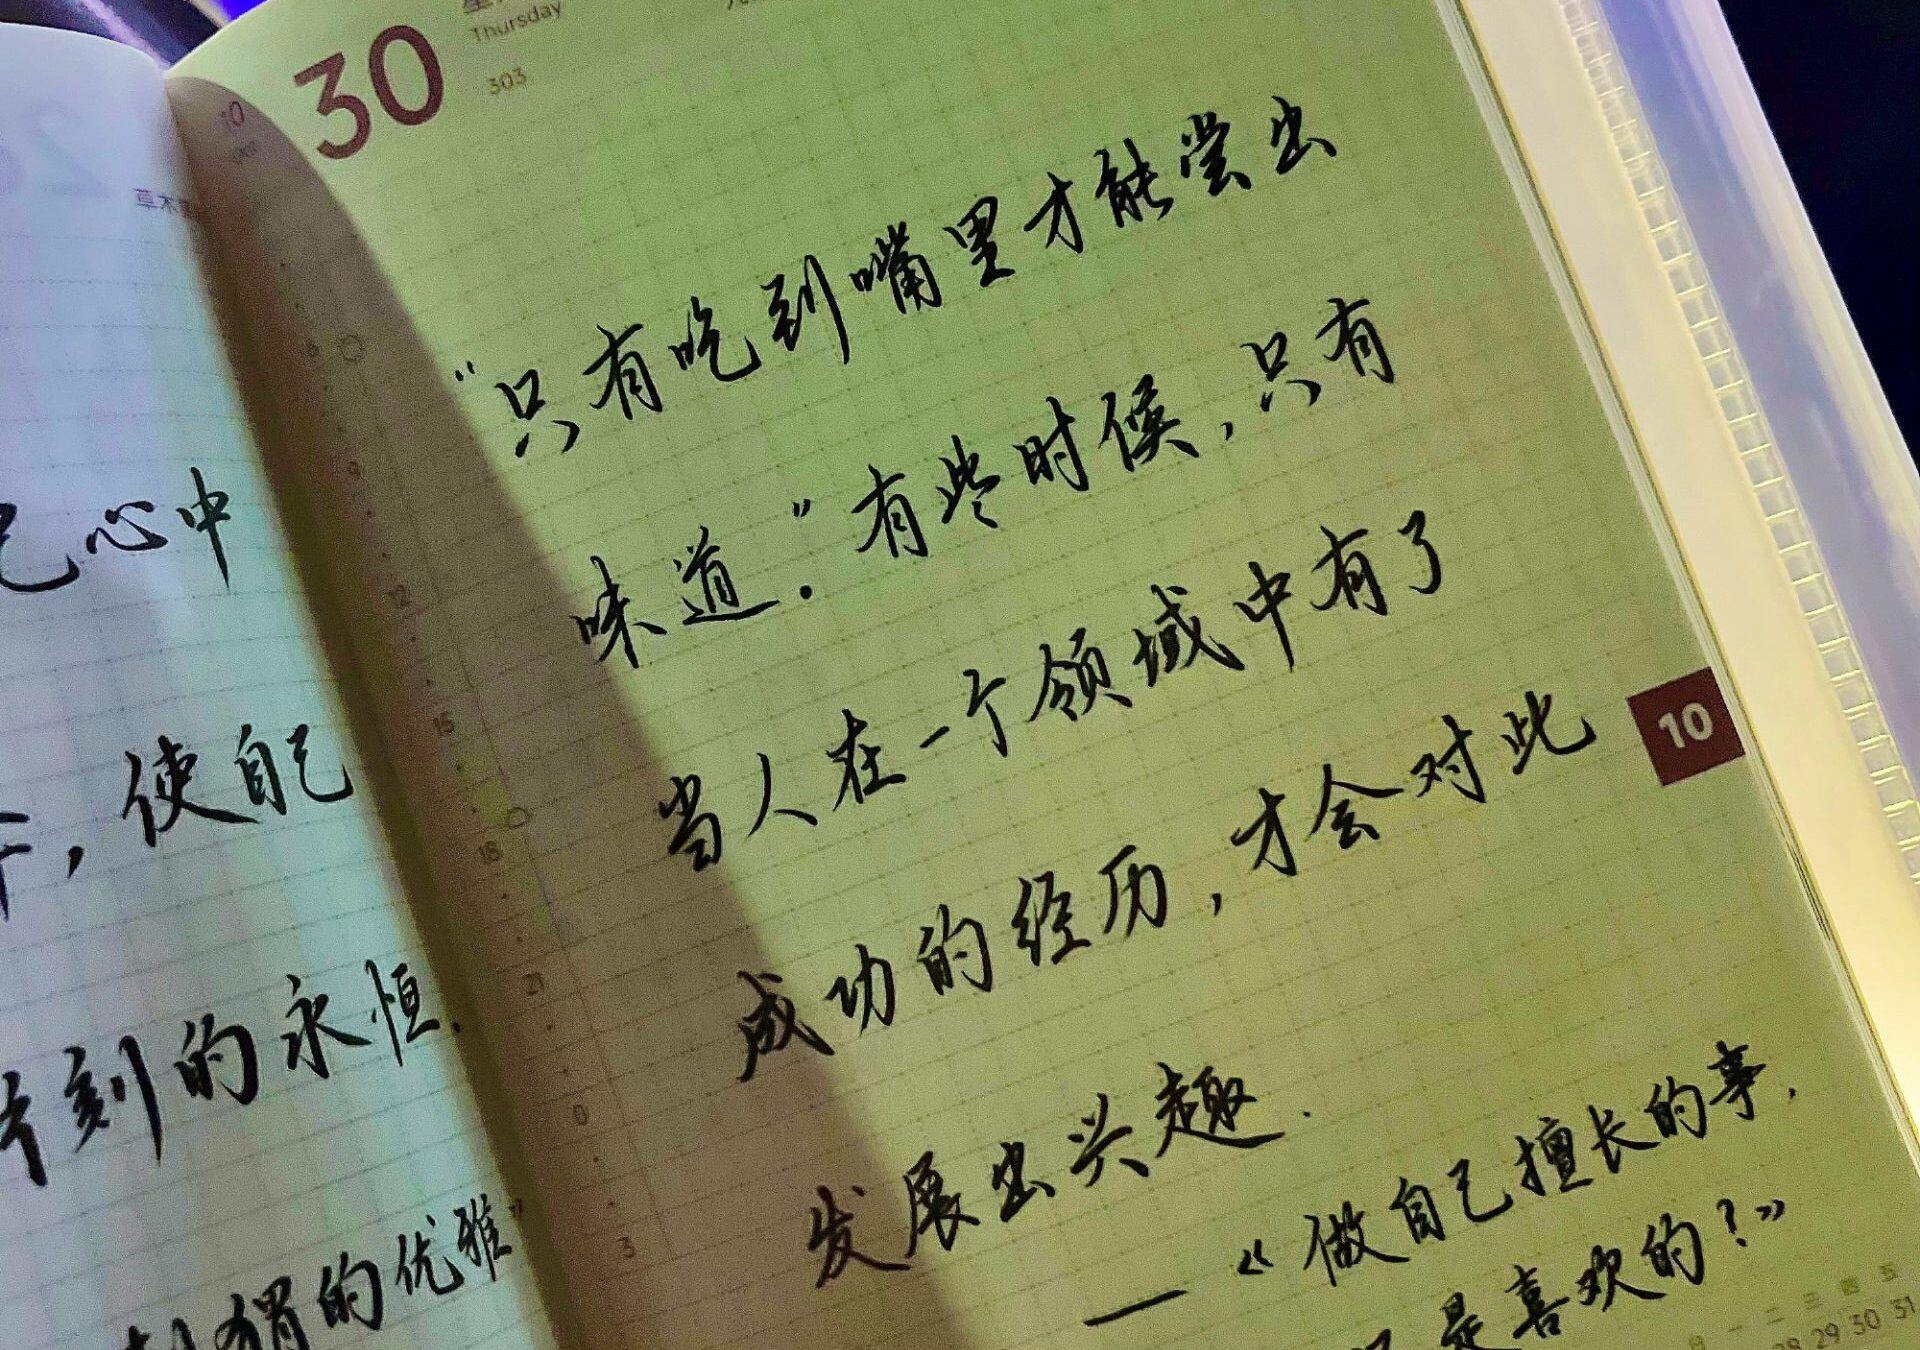 心中
，使自己
刻的永恒.
猬的优雅”
草木
30
Thursday
303
10
“只有吃到嘴里才能尝出
味道.”有些时候，只有
当人在一个领域中有了
成功的经历，才会对此
发展出兴趣.
——《做自己擅长的事，
是喜欢的？》
9
12
15
18
21
0
3
10
一 二 三 四 五
28 29 30 31